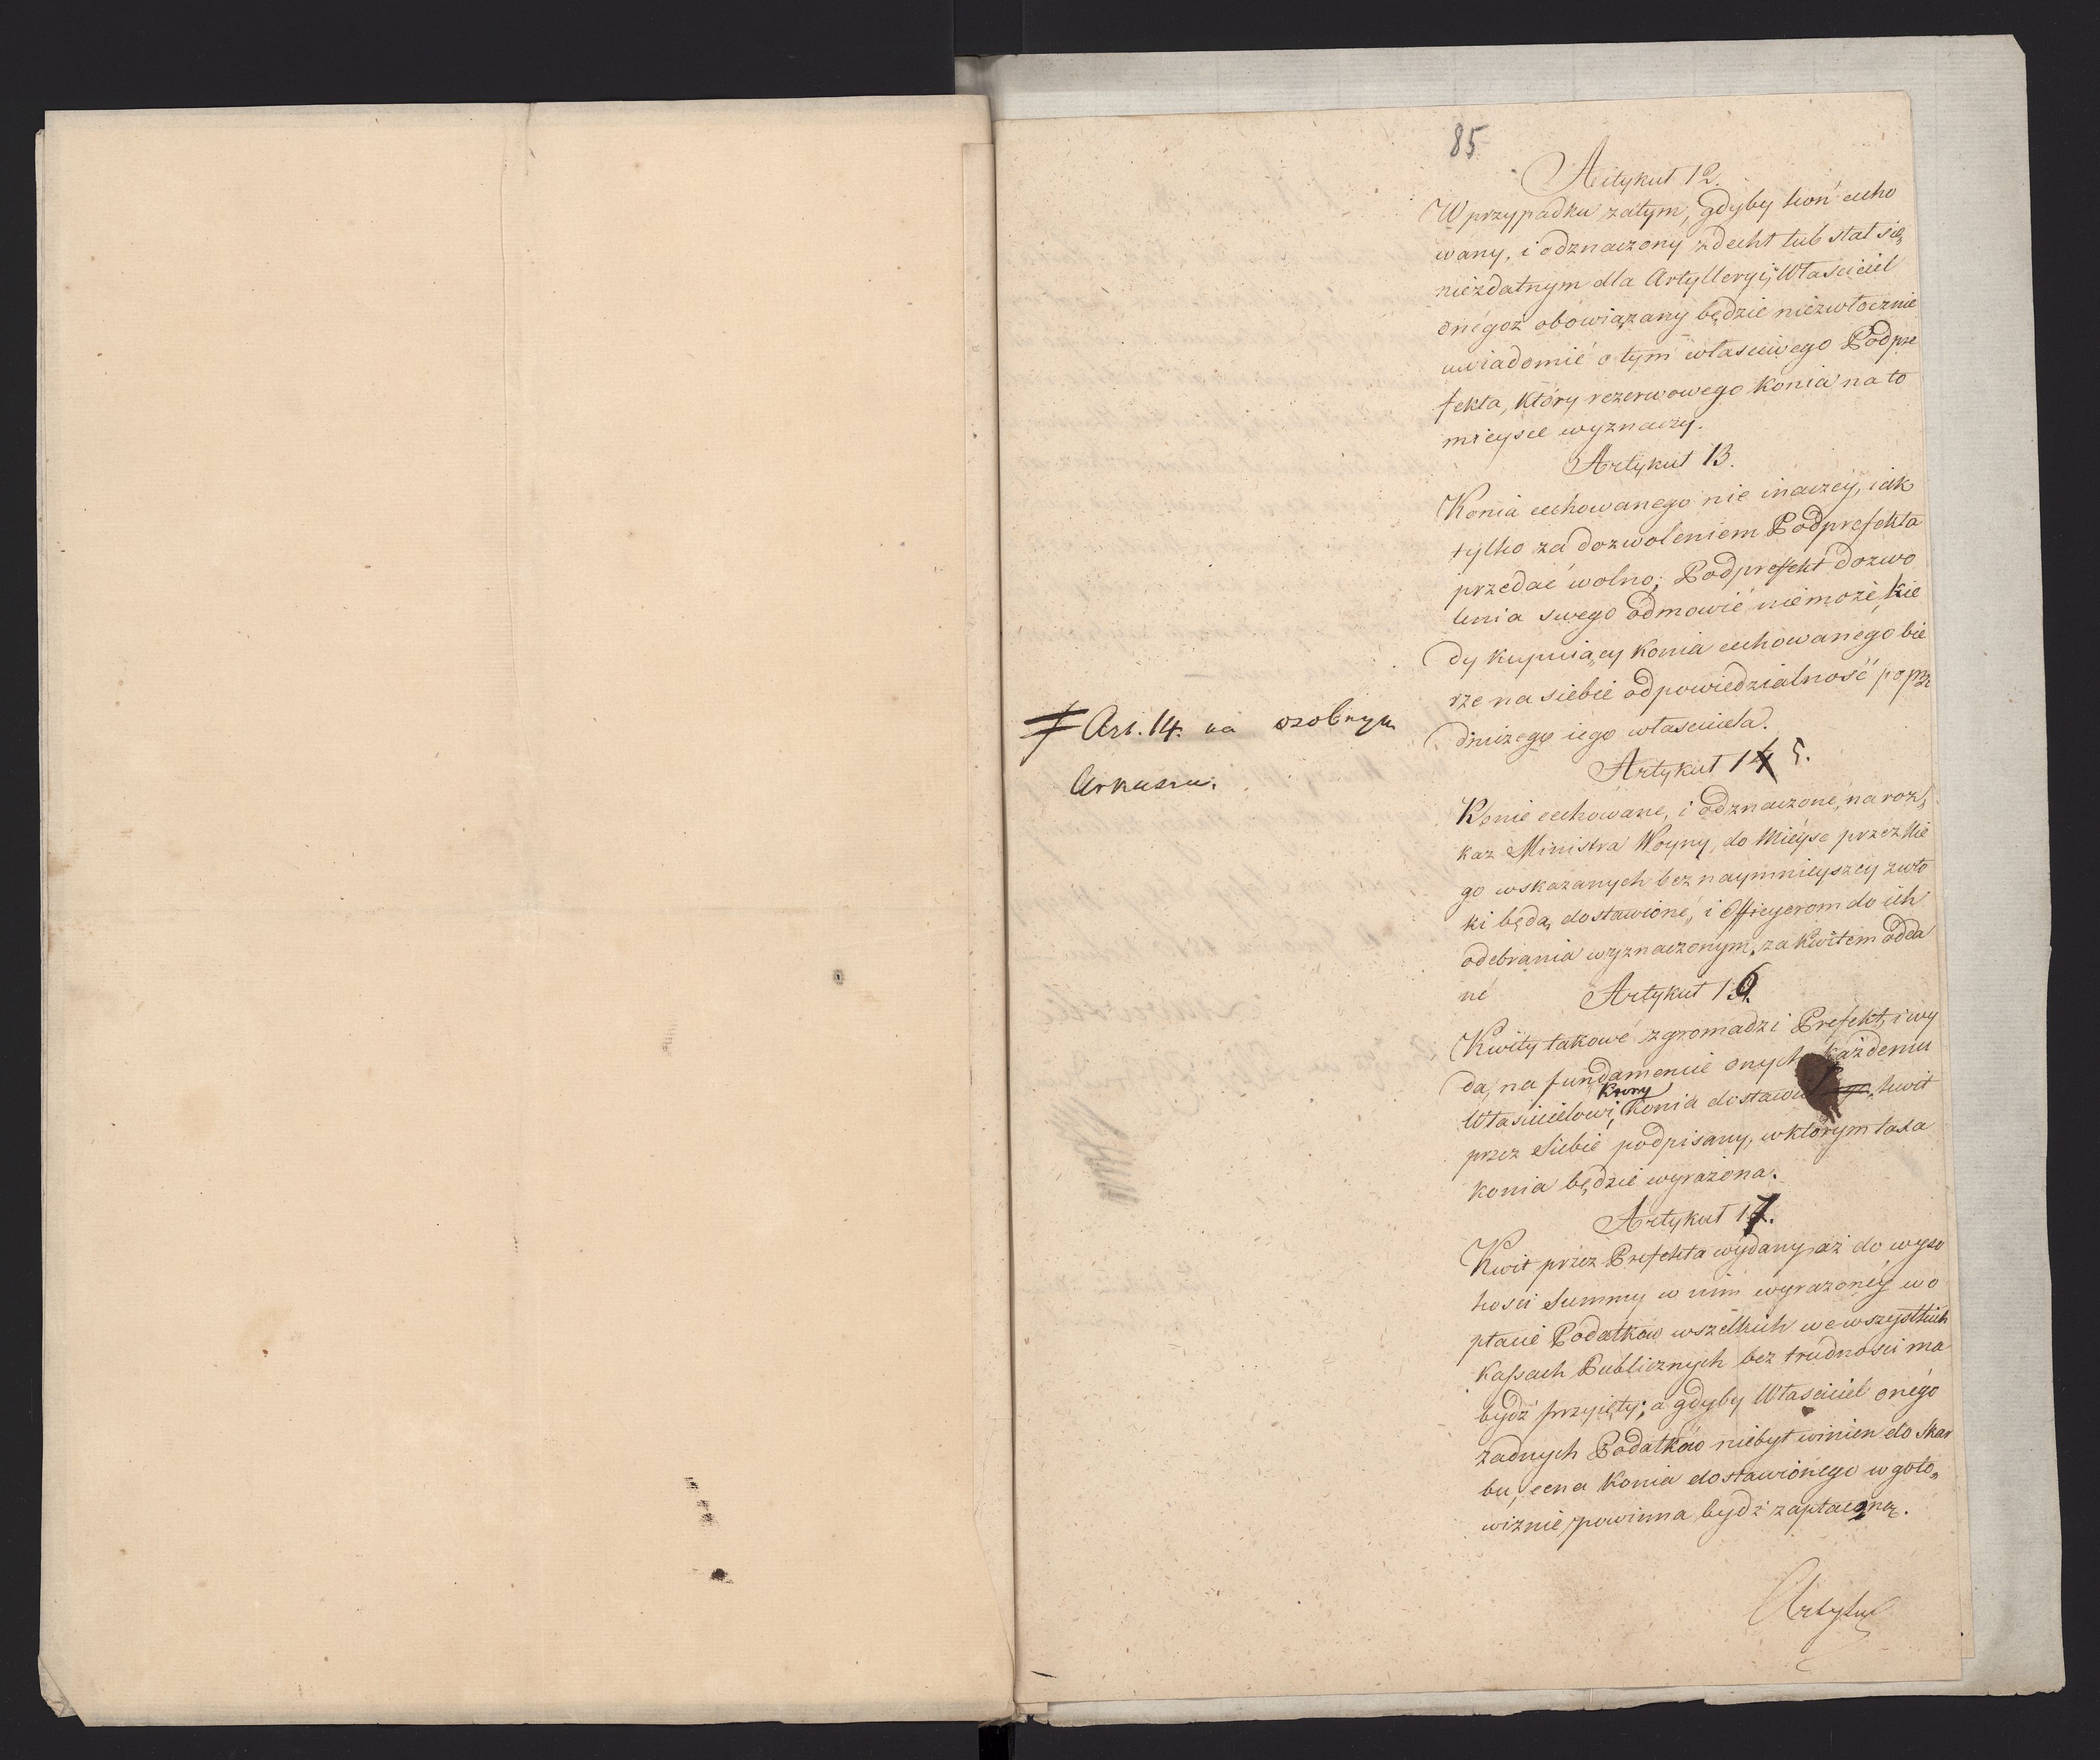 85
Artykuł 12.
W przypadku zatym, gdyby koń cecho
wany, i odznaczony zdechł lub stał się,
niezdatnym dla Artylleryi, Właściciel
onegoż obowiązany będzie niezwłocznie
uwiadomić o tym własciwego Podpre
fekta, który rezerwowego konia na to
mieysce wyznaczy.
Artykuł 13.
Konia cechowanego nie inaczey, iak
tylko za dozwoleniem Podprefekta
przedać wolno; Podprefekt dozwo
lenia swego odmowić niemoże, kie
dy kupuiący konia cechowanego bie
rze na siebie odpowiedzialność poprze
dniżego iego własciciela.
Art. 14. na osobnym
Arkuszu.
Artykuł 14 5.
Konie cechowane, i odznaczone, na roz„
kaz Ministra Woyny, do Mieysc przez Nie
go wskazanych bez naymnieyszey zwło
ki będą dostawione, i Officyerom do ich
odebrania wyznaczonym, za kwitem odda
né
Artykuł 16.
Kwity takowé zgromadzi Prefekt, i wy
da, na fundamencie onych każdemu
Włascicielowi, który konia dostawił kwit
przez Siebie podpisany, w którym taxa
konia będzie wyrażona.
Artykuł 17.
Kwit przez Prefekta wydany aż do wyso
kości Summy w nim wyrażonéy w o
płacie Podatków wszelkich we wszystkich
Kassach Publicznych bez trudności ma
bydź przyięty; a gdyby Właściciel onégo
żadnych Podatków niebył winien do Skar
bu, cena Konia dostawionego w goto„
wiznie powinna bydź zapłaconą.
Artykuł